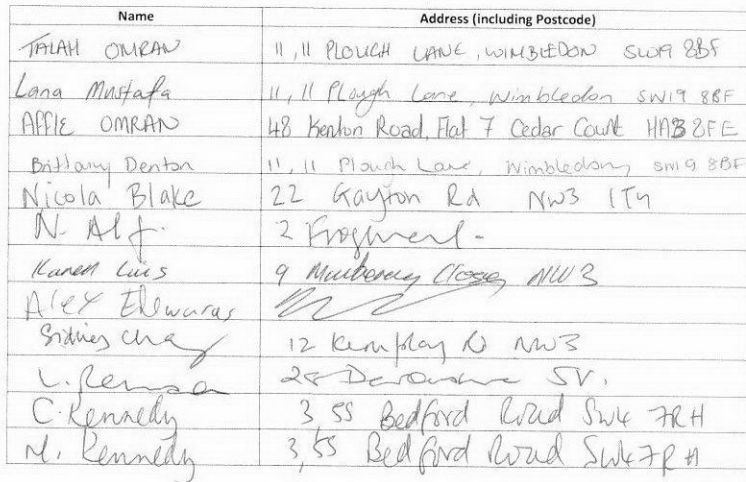 Name Address (including Postcode)
TALAH OMRAN 11, 11 PLOUGH LANE, WIMBLEDON SW19 8BF
Lana Mustafa 11, 11 Plough Lane, Wimbledon SW19 8BF
AFFIE OMRAN 48 Kenton Road, Flat 7 Cedar Court HA3 8FE
Brittany Denton 11, 11 Plough Lane, Wimbledon, SW19 8BF
Nicola Blake 22 Gayton Rd NW3 1TY
N. Alf. 2
Karen Luis 9 Close, NW3
Alex
Sidney 12 Kemplay Rd NW3
L. 28 Devonshire
C. Kennedy 3, 55 Bedford Road SW4 7RH
M. Kennedy 3, 55 Bedford Road SW4 7RH